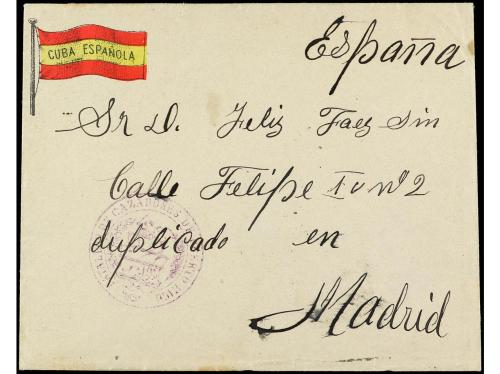 CUBA ESPAÑOLA
España
Sr D. Feliz Faez Sin
Calle Felipe IV nº 2
duplicado en
Madrid
CAZADORES DE PUERTO RICO